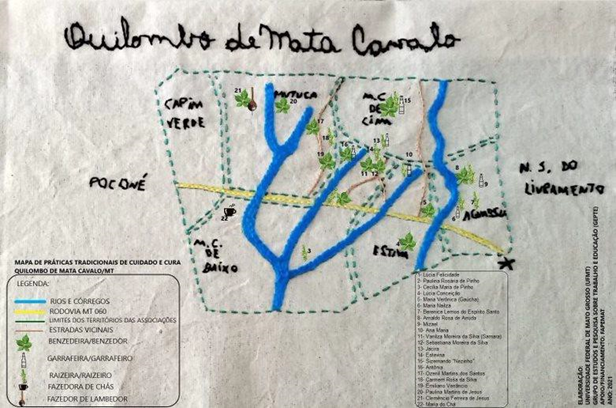 Quilombo de Mata Cavalo
CAPIM
VERDE
MUTUCA
M.C
DE
CIMA
POCONÉ
N. S. DO
LIVRAMENTO
AGUASSU
M.C.
DE
BAIXO
ESTIVA
MAPA DE PRÁTICAS TRADICIONAIS DE CUIDADO E CURA
QUILOMBO DE MATA CAVALO/MT
LEGENDA:
RIOS E CÓRREGOS
RODOVIA MT 060
LIMITES DOS TERRITÓRIOS DAS ASSOCIAÇÕES
ESTRADAS VICINAIS
BENZEDEIRA/BENZEDOR
GARRAFEIRA/GARRAFEIRO
RAIZEIRA/RAIZEIRO
FAZEDORA DE CHÁS
FAZEDOR DE LAMBEDOR
1- Lúcia Felicidade
2- Paulina Rosária de Pinho
3- Cecília Maria de Pinho
4- Lúcia Conceição
5- Maria Verônica (Gaúcha)
6- Maria Naliza
7- Berenice Lemos do Espírito Santo
8- Arnaldo Rosa de Arruda
9- Mizael
10- Ana Maria
11- Vanilza Moreira da Silva (Samara)
12- Sebastiana Moreira da Silva
13- Jacira
14- Estevina
15- Sizernando "Nezinho"
16- Antônia
17- Ozenil Martins dos Santos
18- Carmem Rosa da Silva
19- Emiliani Verdécio
20- Paulina Martins de Jesus
21- Clemência Ferreira de Jesus
22- Maria do Chá
ELABORAÇÃO:
UNIVERSIDADE FEDERAL DE MATO GROSSO (UFMT)
GRUPO DE ESTUDOS E PESQUISA SOBRE TRABALHO E EDUCAÇÃO (GEPTE)
APOIO/FINANCIAMENTO: FAPEMAT